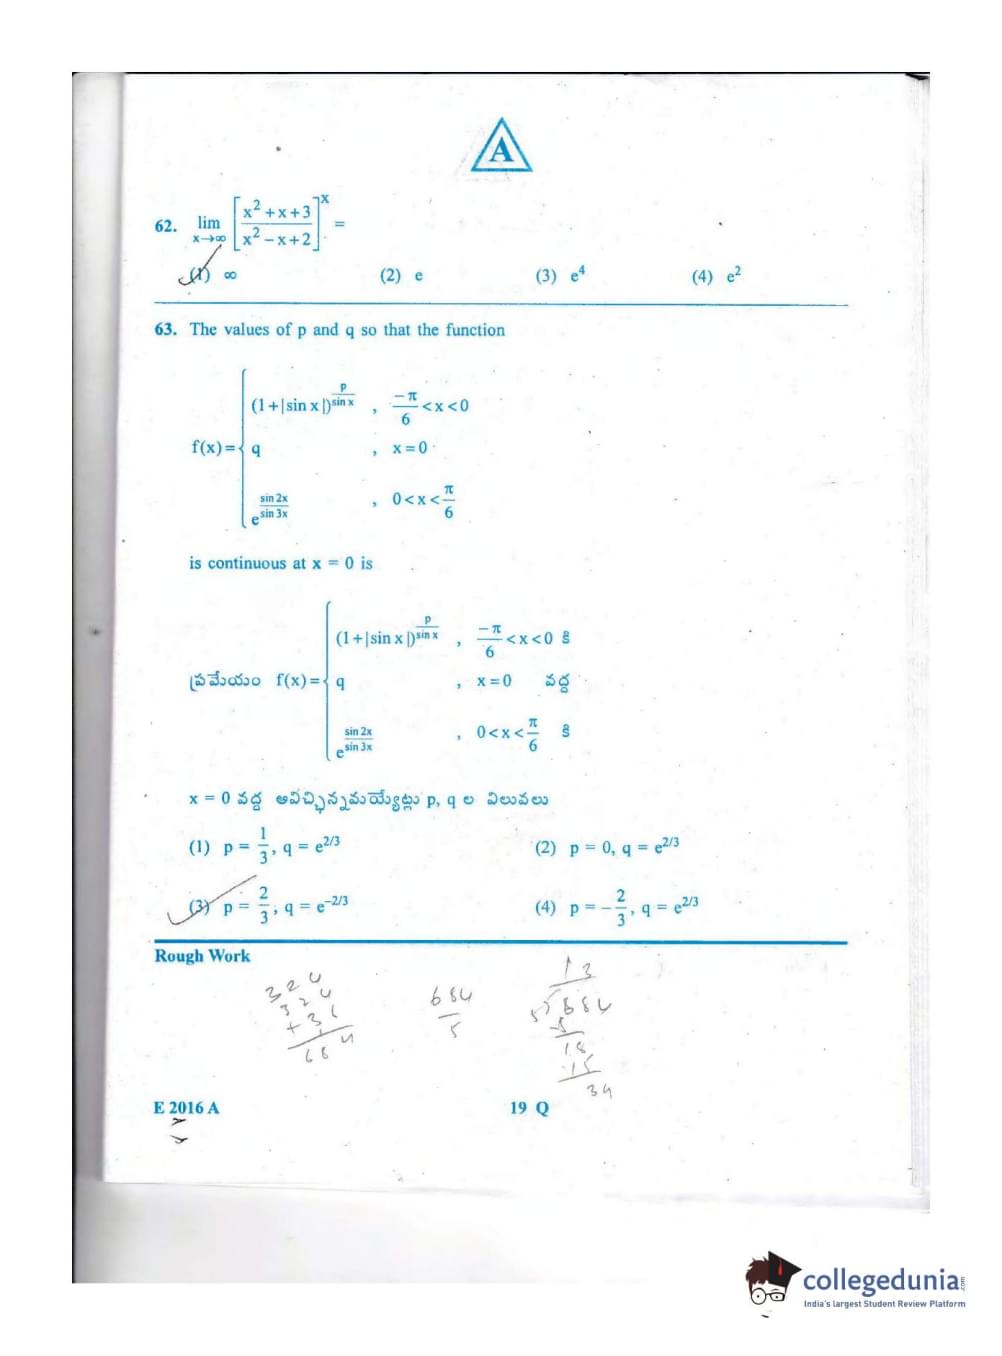 A
62. lim x→∞ [(x² + x + 3)/(x² − x + 2)]^x =
(1) ∞ (2) e (3) e⁴ (4) e²
63. The values of p and q so that the function
(1+|sin x|)^(p/sin x) , −π/6 < x < 0
f(x) = { q , x = 0
e^(sin 2x/sin 3x) , 0 < x < π/6
is continuous at x = 0 is
(1+|sin x|)^(p/sin x) , −π/6 < x < 0 కి
ప్రమేయం f(x) = { q , x = 0 వద్ద
e^(sin 2x/sin 3x) , 0 < x < π/6 కి
x = 0 వద్ద అవిచ్ఛిన్నమయ్యేట్లు p, q ల విలువలు
(1) p = 1/3, q = e^(2/3) (2) p = 0, q = e^(2/3)
(3) p = 2/3, q = e^(−2/3) (4) p = −2/3, q = e^(2/3)
Rough Work
324
324
+ 36
684
684/5
13
5)684
5
18
15
34
E 2016 A 19 Q
collegedunia.com
India's largest Student Review Platform